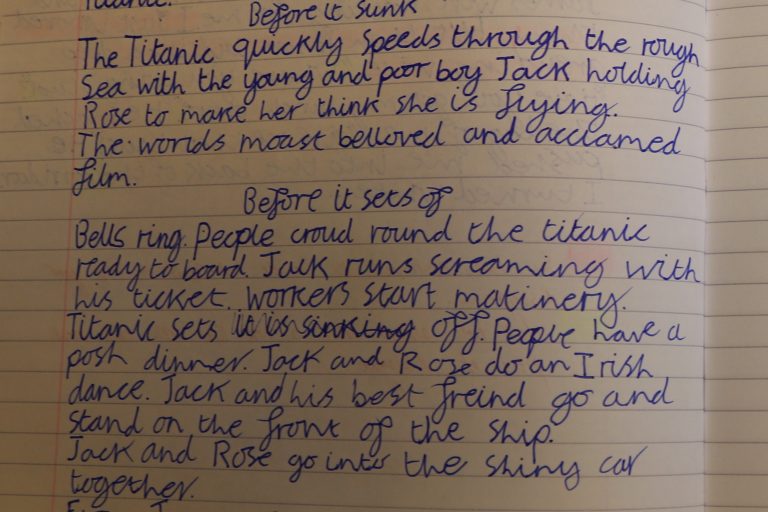 Titanic.
Before it sunk
The Titanic quickly speeds through the rough
sea with the young and poor boy Jack holding
Rose to make her think she is flying.
The worlds moast belloved and acclamed
film.
Before it sets of
Bells ring. People croud round the titanic
ready to board. Jack runs screaming with
his ticket. Workers start matinery.
Titanic sets it is sinking off. People have a
posh dinner. Jack and Rose do an Irish
dance. Jack and his best freind go and
stand on the front of the ship.
Jack and Rose go into the shiny car
together.